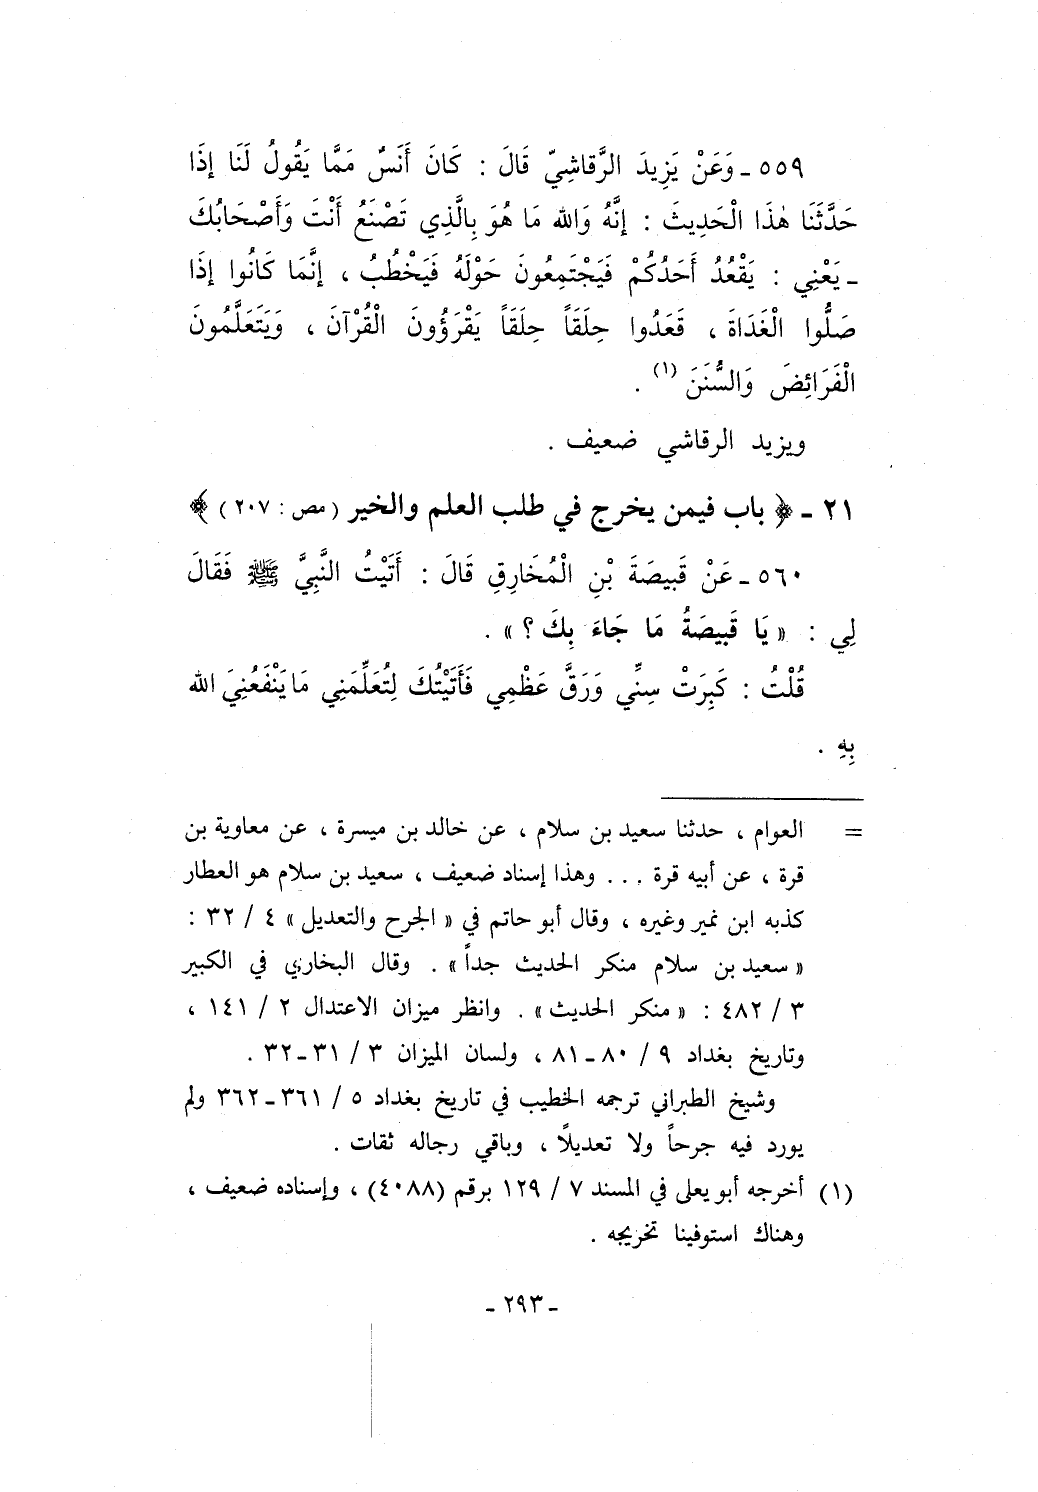 ٥٥٩ ـ وَعَنْ يَزِيدَ الرَّقاشِيّ قَالَ : كَانَ أَنَسٌ مَمَّا يَقُولُ لَنَا إذَا
حَدَّثَنَا هٰذَا الْحَدِيثَ : إنَّهُ وَالله مَا هُوَ بِالَّذِي تَصْنَعُ أَنْتَ وَأَصْحَابُكَ
ـ يَعْنِي : يَقْعُدُ أَحَدُكُمْ فَيَجْتَمِعُونَ حَوْلَهُ فَيَخْطُبُ ، إنَّمَا كَانُوا إذَا
صَلُّوا الْغَدَاةَ ، قَعَدُوا حِلَقَاً حِلَقَاً يَقْرَؤُونَ الْقُرْآنَ ، وَيَتَعَلَّمُونَ
الْفَرَائِضَ وَالسُّنَنَ (١) .
ويزيد الرقاشي ضعيف .
٢١ ـ ﴿ باب فيمن يخرج في طلب العلم والخير ( مص : ٢٠٧ ) ﴾
٥٦٠ ـ عَنْ قَبِيصَةَ بْنِ الْمُخَارِقِ قَالَ : أَتَيْتُ النَّبِيَّ ﷺ فَقَالَ
لِي : « يَا قَبِيصَةُ مَا جَاءَ بِكَ ؟ » .
قُلْتُ : كَبِرَتْ سِنِّي وَرَقَّ عَظْمِي فَأَتَيْتُكَ لِتُعَلِّمَنِي مَا يَنْفَعُنِيَ الله
بِهِ .
= العوام ، حدثنا سعيد بن سلام ، عن خالد بن ميسرة ، عن معاوية بن
قرة ، عن أبيه قرة ... وهذا إسناد ضعيف ، سعيد بن سلام هو العطار
كذبه ابن نمير وغيره ، وقال أبو حاتم في « الجرح والتعديل » ٤ / ٣٢ :
« سعيد بن سلام منكر الحديث جداً » . وقال البخاري في الكبير
٣ / ٤٨٢ : « منكر الحديث » . وانظر ميزان الاعتدال ٢ / ١٤١ ،
وتاريخ بغداد ٩ / ٨٠ ـ ٨١ ، ولسان الميزان ٣ / ٣١ ـ ٣٢ .
وشيخ الطبراني ترجمه الخطيب في تاريخ بغداد ٥ / ٣٦١ ـ ٣٦٢ ولم
يورد فيه جرحاً ولا تعديلاً ، وباقي رجاله ثقات .
(١) أخرجه أبو يعلى في المسند ٧ / ١٢٩ برقم (٤٠٨٨) ، وإسناده ضعيف ،
وهناك استوفينا تخريجه .
ـ ٢٩٣ ـ